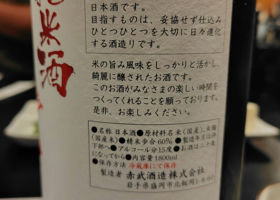 純米酒
日本酒です。
目指すものは、妥協せず仕込み
ひとつひとつを大切に日々進化
する酒造りです。
米の旨み風味をしっかりと活かし、
綺麗に醸されたお酒です。
このお酒がみなさまの楽しい時間を
つくってくれることを願っております。
是非、お楽しみください。
●名称 日本酒●原材料名 米(国産)、米麹
(国産米)●精米歩合 60% ●製造年月は左
下部へ●アルコール分15度●お酒は二十歳
になってから●内容量1800ml
●保存方法 冷蔵庫にて保存
製造者 赤武酒造株式会社
岩手県盛岡市北飯岡1-8-60